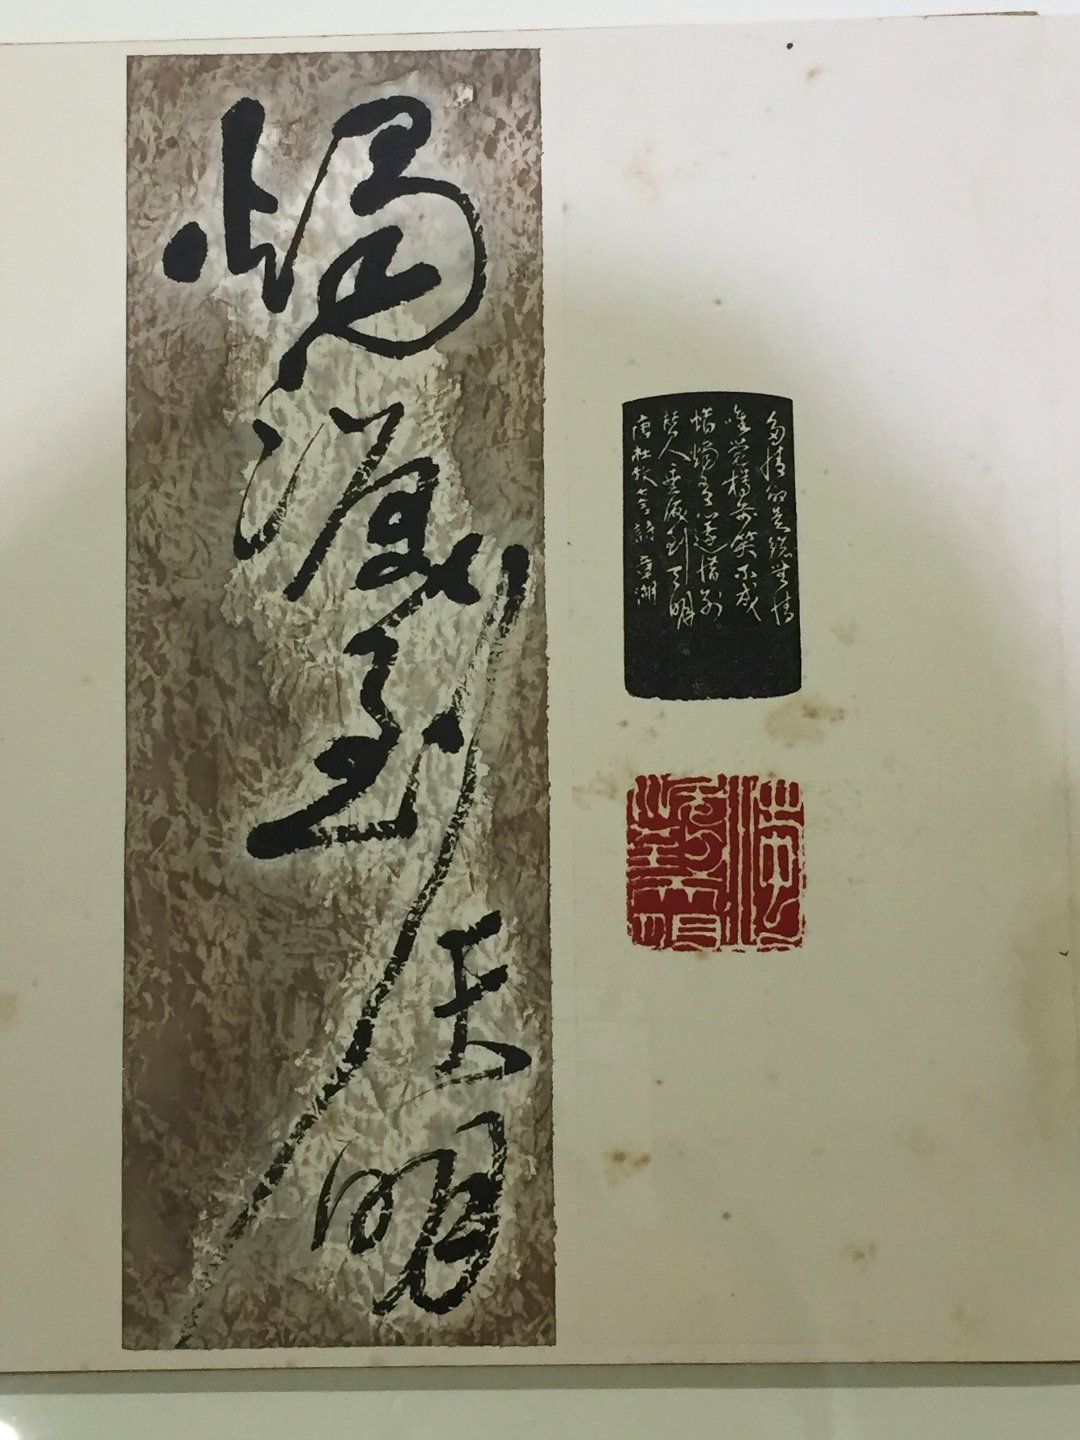 燭淚到天明
多情却是總無情
唯覺樽前笑不成
蜡燭有心還惜别
替人垂淚到天明
唐杜牧七言詩